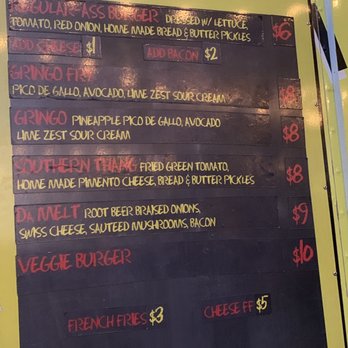 REGULAR-ASS BURGER DRESSED W/ LETTUCE, $6
TOMATO, RED ONION, HOME MADE BREAD & BUTTER PICKLES
ADD CHEESE $1 ADD BACON $2
GRINGO FRY $8
PICO DE GALLO, AVOCADO, LIME ZEST SOUR CREAM
GRINGO PINEAPPLE PICO DE GALLO, AVOCADO $8
LIME ZEST SOUR CREAM
SOUTHERN THANG FRIED GREEN TOMATO, $8
HOME MADE PIMENTO CHEESE, BREAD & BUTTER PICKLES
DA MELT ROOT BEER BRAISED ONIONS, $9
SWISS CHEESE, SAUTEED MUSHROOMS, BACON
VEGGIE BURGER $10
FRENCH FRIES $3 CHEESE FF $5